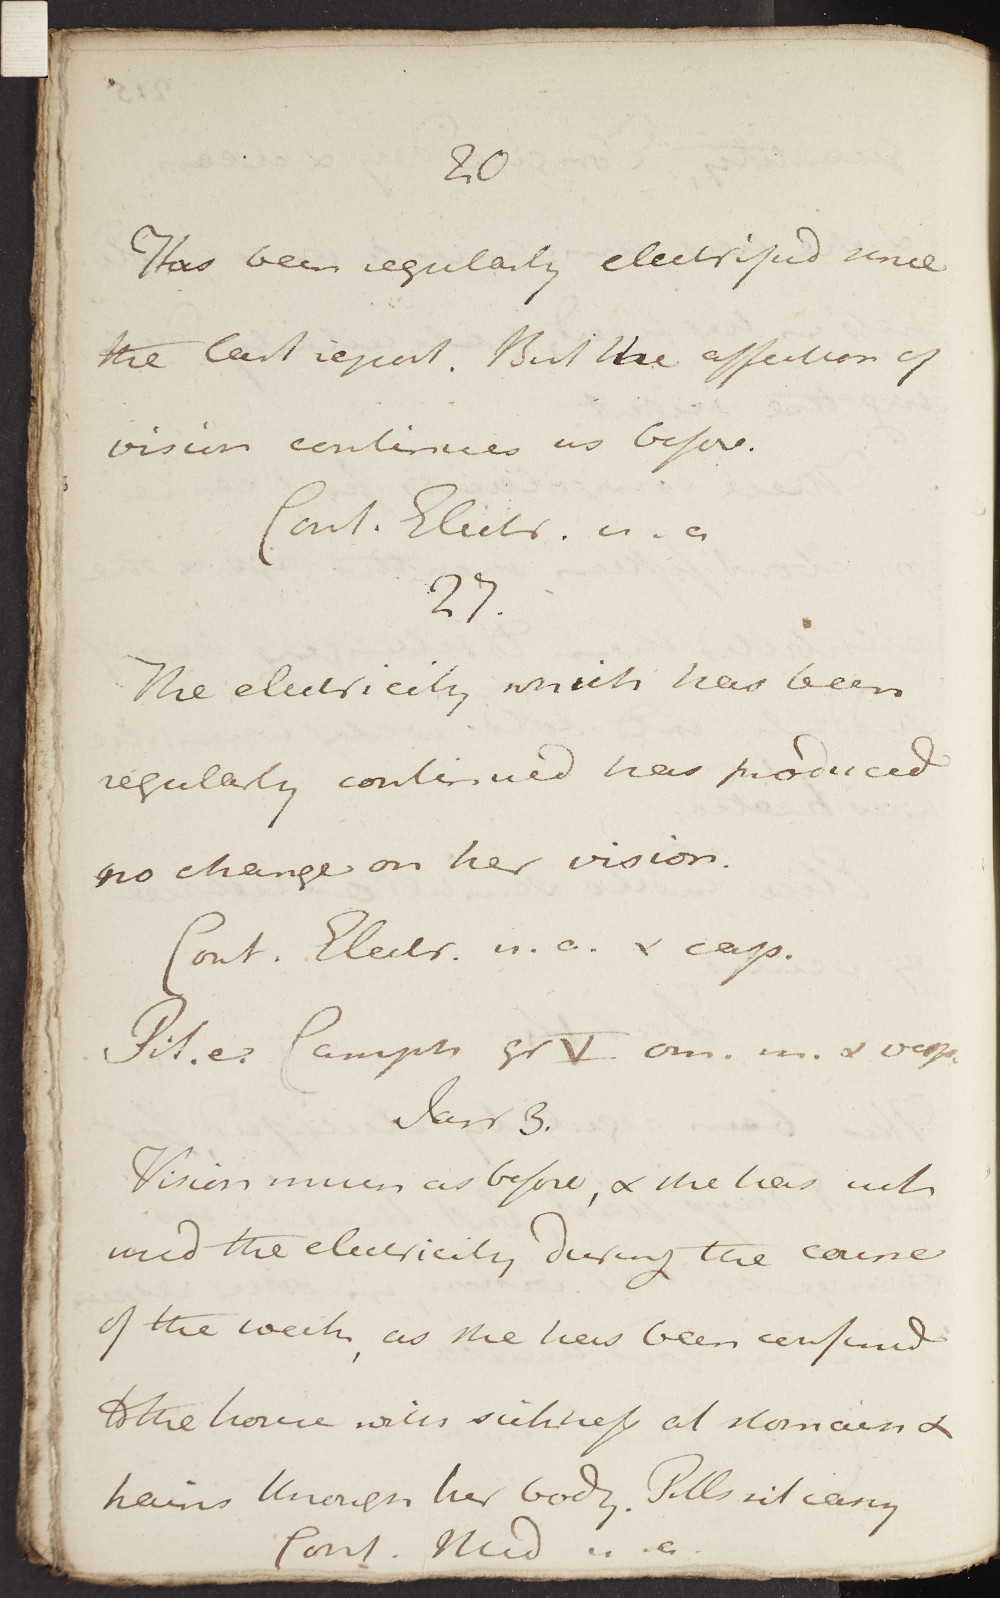 20
Has been regularly electrified since
the last report. But the affection of
vision continues as before.
Cont. Electr. u. a
27.
The electricity which has been
regularly continued has produced
no change on her vision.
Cont. Electr. u. a. & cap.
Pil. e. Camph gr V om. m. & vesp.
Janr 3.
Vision much as before, & she has not
used the electricity during the course
of the week, as she has been confined
to the house with sickness at stomach &
pains through her body. Pills sit easy
Cont. Med u. a.